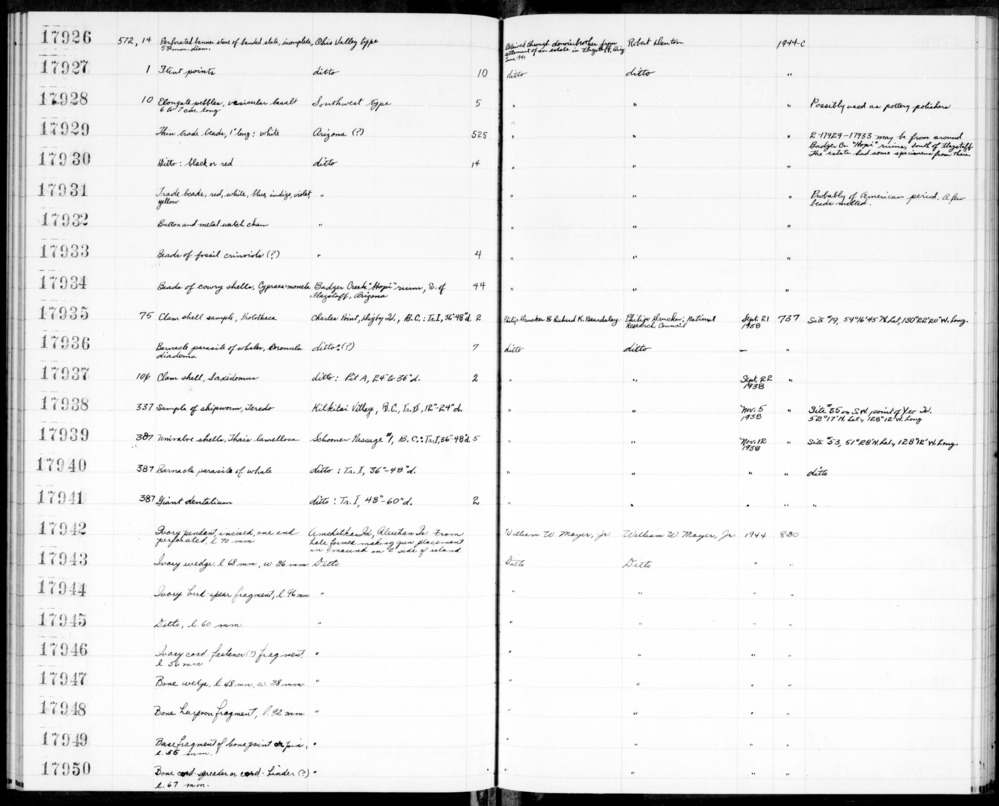 17926 572, 14 Perforated banner stone of banded slate, incomplete, Ohio Valley type Obtained through donor's brother from Robert Denton 1944-C
mm. diam. settlement of an estate in Flagstaff, Ariz
17927 1 Flint points ditto 10 ditto ditto "
17928 10 Elongate pebbles, vesicular basalt Southwest type 5 " " " Possibly used as pottery polishers
6 to 7 cm. long
17929 Thin trade beads, 1" long: white Arizona (?) 525 " " " 2-17929-17933 may be from around
Badger Cr. "Hopi" ruins, South of Flagstaff
17930 Ditto: black or red ditto 14 " " " The estate had some specimens from there
17931 Trade beads, red, white, blue, indigo, violet, " " " " Probably of American period. A few
yellow beads melted.
17932 Button and metal watch chain " " " "
17933 Beads of fossil crinoids (?) " 4 " " "
17934 Beads of cowry shells, Cypraea moneta Badger Creek "Hopi" ruin, S. of 44 " " "
Flagstaff, Arizona
17935 75 Clam shell sample, Charles Point, Higby Id., B.C.: Tr. I, 36"-48"d. 2 Philip Drucker & Richard K. Beardsley Philip Drucker, National Sept. 21 737 Site #19, 54°16'45" N. Lat, 130°22'20" W. Long.
Research Council 1938
17936 Barnacle parasite of whales, Coronula ditto: (?) 7 ditto ditto — "
diadema
17937 106 Clam shell, Saxidomus ditto: Pit A, 24" to 36"d. 2 " " Sept. 22 "
1938
17938 337 Sample of shipworm, Teredo Kilkitei Village, B.C., Tr. II, 12"-24"d. " " Nov. 5 " Site #35 on S.W. point of Yeo Id.
1938 52°17' N. Lat., 128°12' W. Long
17939 387 Univalve shells, Thais lamellosa Schooner Passage #1, B.C.: Tr. I, 36"-48"d. 5 " " Nov. 12 " Site #53, 51°28' N. Lat., 128°12' W. Long.
1938
17940 387 Barnacle parasite of whale ditto: Tr. I, 36"-48"d. " " " " ditto
17941 387 Giant dentalium ditto: Tr. I, 48"-60"d. 2 " " " " "
17942 Ivory pendant, incised, one end Amchitka Id, Aleutian Is. From William W. Mayer, Jr. William W Mayer, Jr. 1944 830
perforated, l. 70 mm hole formed making gun placement
in mound on side of island
17943 Ivory wedge, l. 68 mm, w. 36 mm Ditto Ditto Ditto " "
17944 Ivory bird-spear fragment, l. 96 mm " " " " "
17945 Ditto, l. 60 mm " " " " "
17946 Ivory cord fastener (?) fragment, " " " " "
l. 56 mm
17947 Bone wedge, l. 48 mm, w. 38 mm " " " " "
17948 Bone harpoon fragment, l. 92 mm " " " " "
17949 Base fragment of bone point or pin, " " " " "
l. 56 mm.
17950 Bone cord-spreader or cord-binder (?) " " " " "
l. 67 mm.